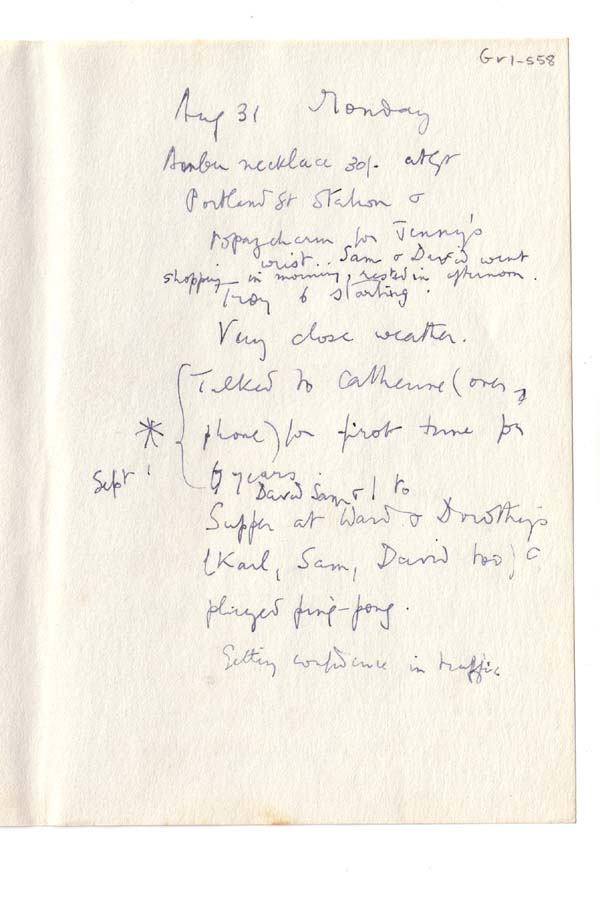 Gv1-558
Aug 31 Monday
Amber necklace 30/- at Gt
Portland St Station &
topaz charm for Jenny's
wrist.. Sam & David went
shopping in morning, rested in afternoon.
6 starting.
Very close weather.
Talked to Catherine (over
* phone) for first time for
Sept 1
years
David Sam & I to
Supper at Ward & Dorothy's
(Karl, Sam, David too) &
played ping-pong.
Getting confidence in traffic